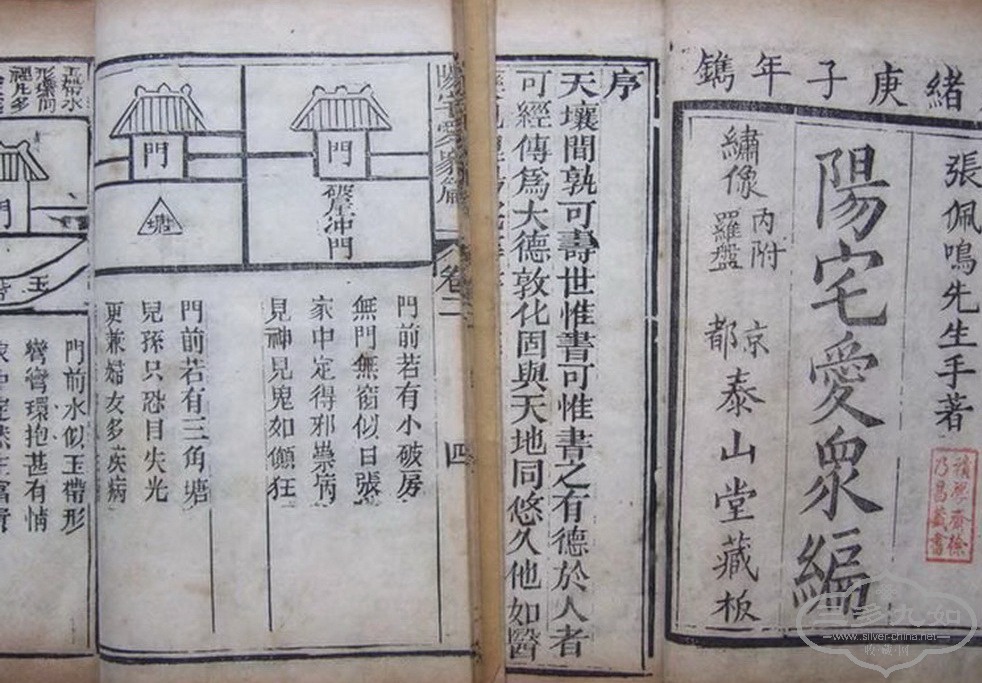 緒庚子年鐫
張佩鳴先生手著
陽宅愛眾編
繡像
內附
羅盤
京
都
泰山堂藏板
積學齋徐
乃昌藏書
序
天壤間孰可壽世惟書可惟書之有德於人者
可經傳爲大德敦化固與天地同悠久他如醫
卷二
四
門
破屋冲門
門前若有小破房
無門無窗似日張
家中定得邪祟病
見神見鬼如顛狂
門
塘
門前若有三角塘
兒孫只恐目失光
更兼婦女多疾病
門
玉
門前水似玉帶形
彎彎環抱甚有情
www.silver-china.net
收藏网